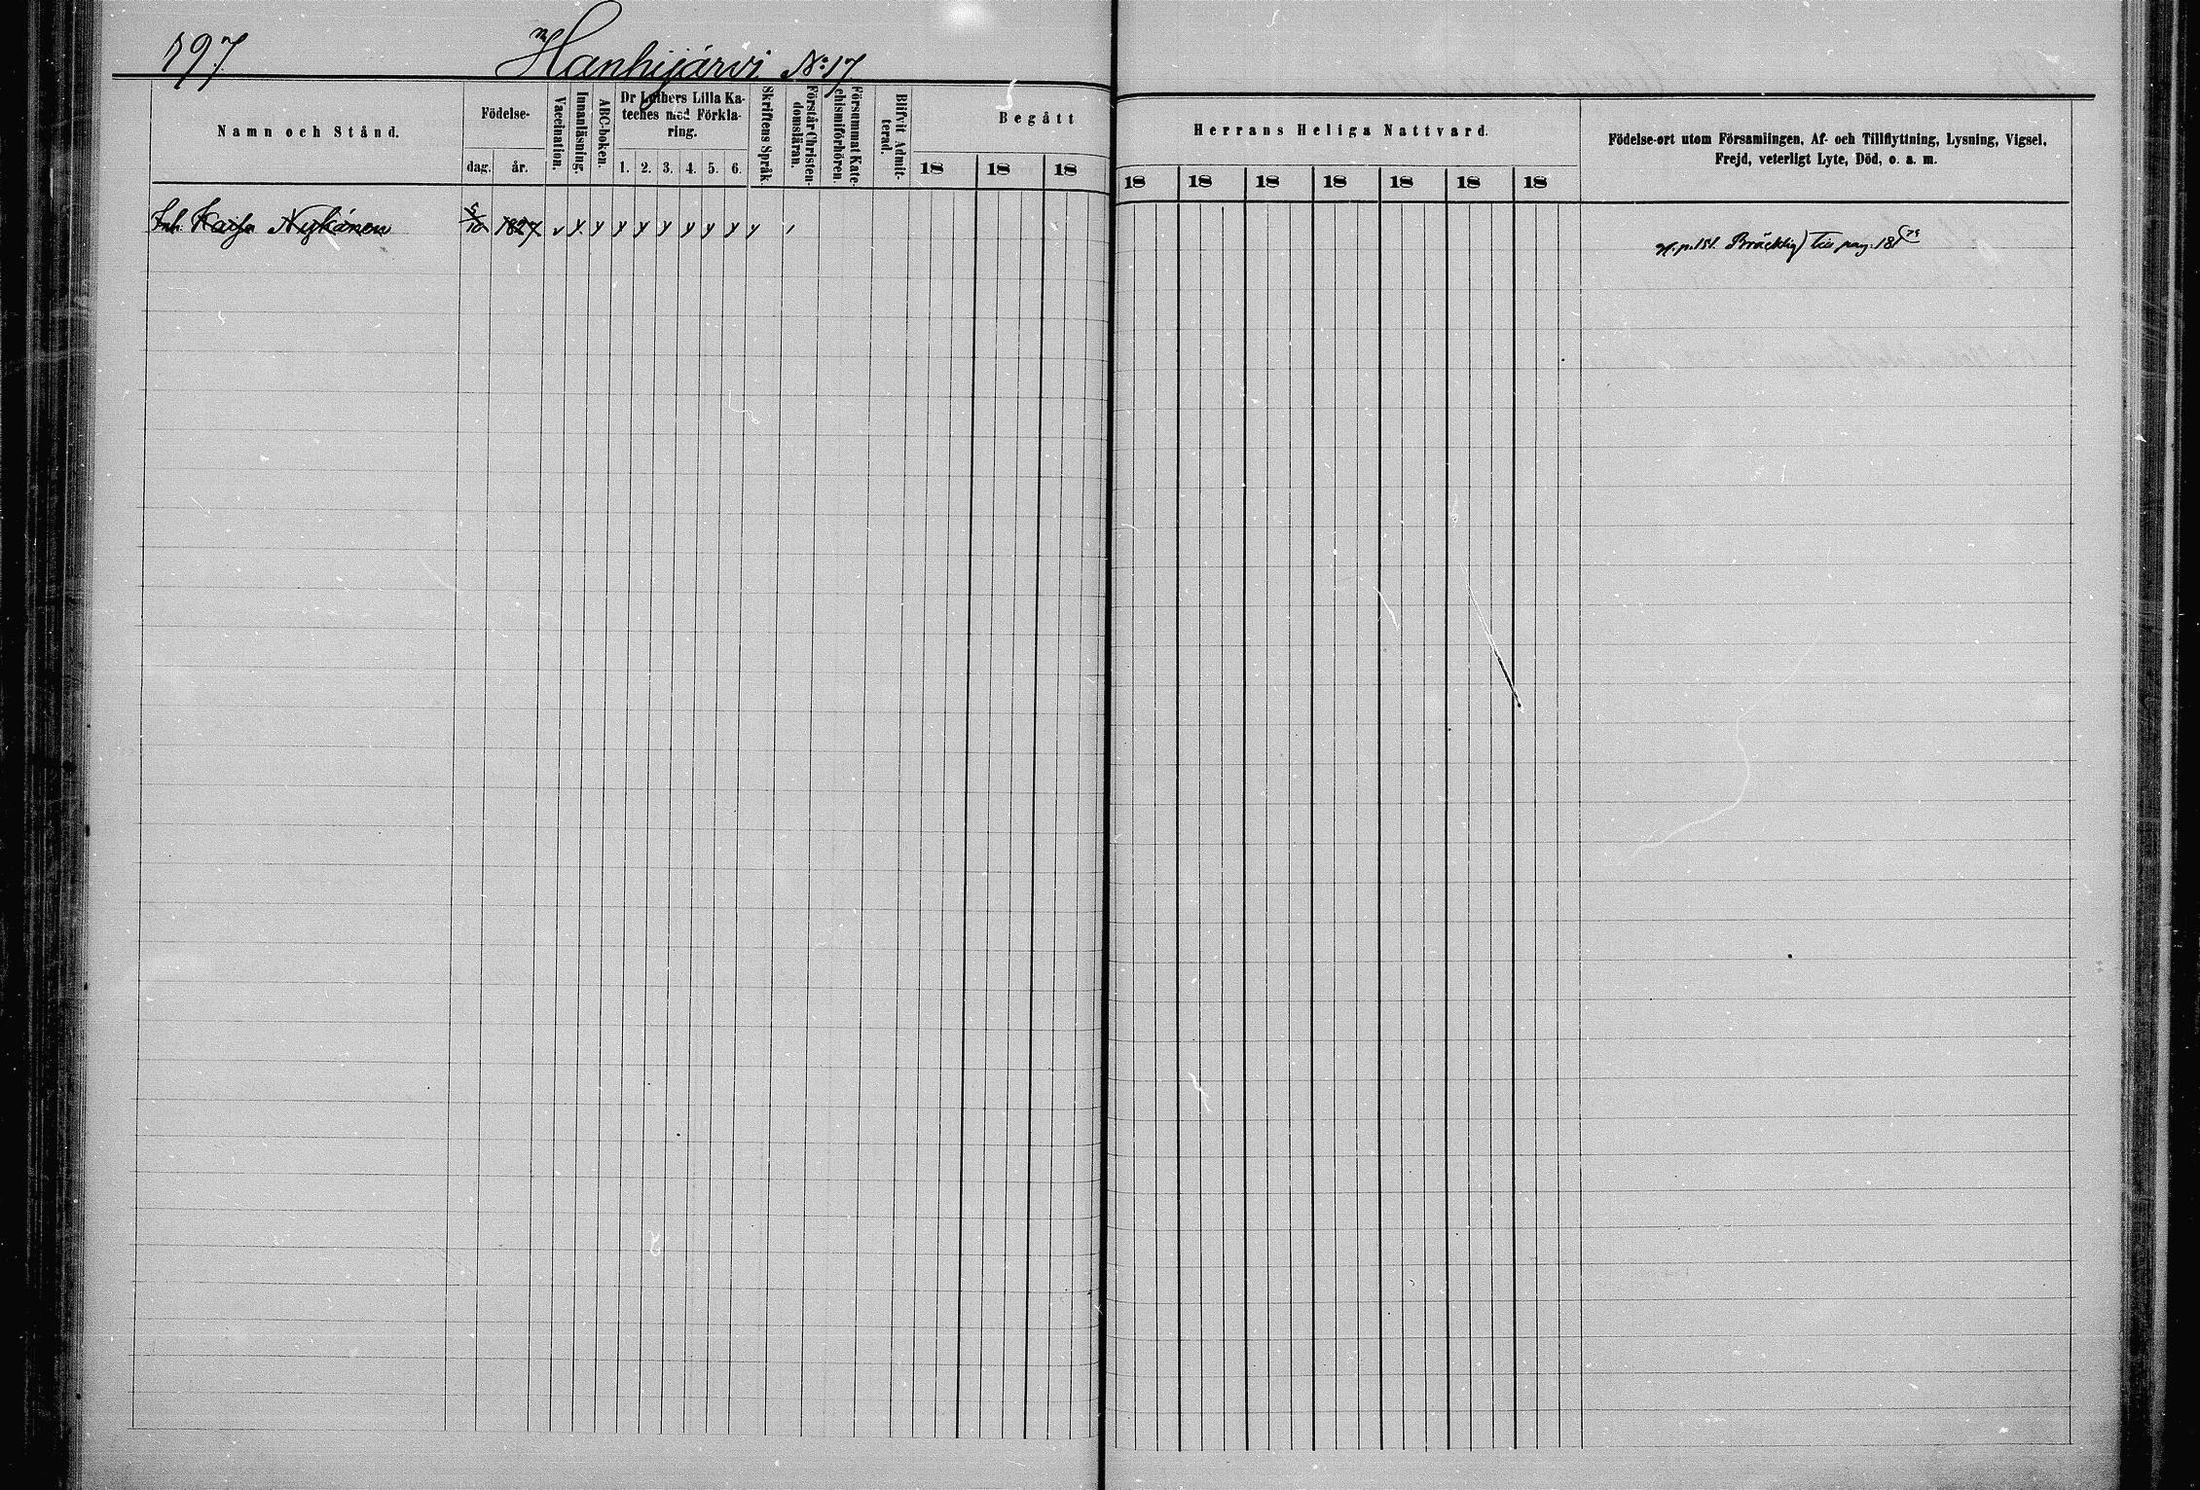 197.
Hanhijärvi N:o 17
Namn och Stånd.
Födelse-
dag.
år.
Vaccination.
Innanläsning.
ABC-boken.
Dr Luthers Lilla Ka-
teches med Förkla-
ring.
1. 2. 3. 4. 5. 6.
Skriftens Språk.
Förstår Christen-
domsläran.
Försummat Kate-
chismiförhören.
Blifvit Admit-
terad.
Begått
18 18 18
Herrans Heliga Nattvard.
18 18 18 18 18 18 18
Födelse-ort utom Församlingen, Af- och Tillflyttning, Lysning, Vigsel,
Frejd, veterligt Lyte, Död, o. a. m.
Inh. Kaisa Nykänen 5/10 1827
p. 151. Bräcklig) Till pag. 181